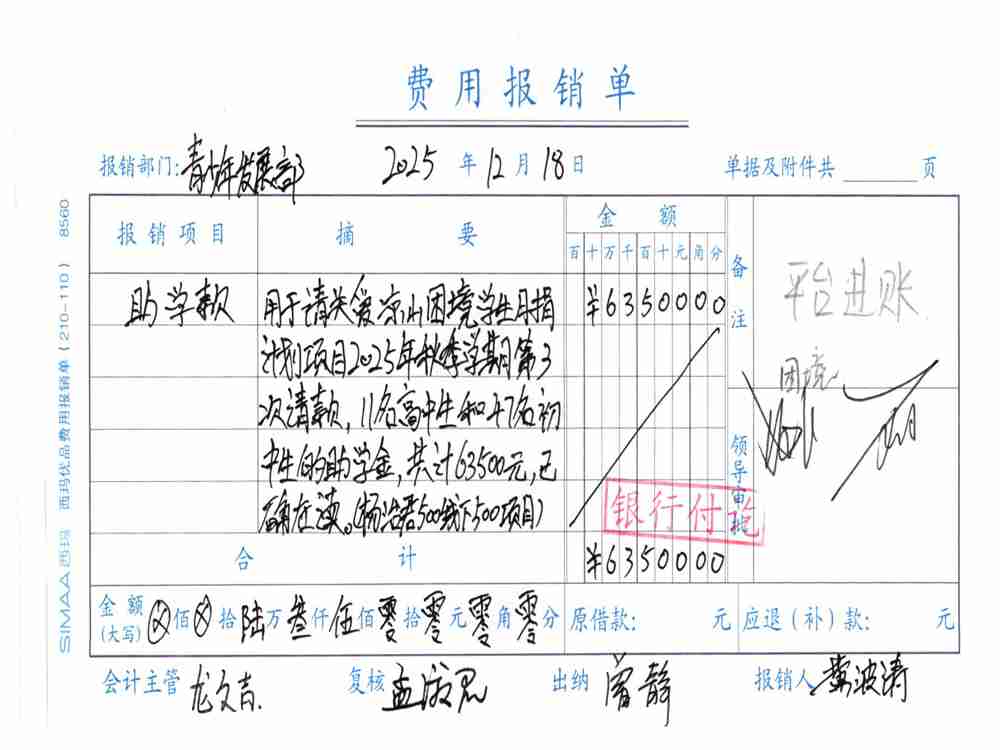 费用报销单
报销部门:青少年发展部 2025年12月18日 单据及附件共 页
报销项目 摘要 金额 备注
百十万千百十元角分
助学款 用于请关爱凉山困境学生月捐 ¥6350000 平台进账
计划项目2025年秋季学期第3 困境
次请款,11名高中生和47名初
中生的助学金,共计63500元,已
确在读。(杨 君500线下500项目)
领导审批
银行付讫
合计 ¥6350000
金额(大写) ⊗佰⊗拾陆万叁仟伍佰零拾零元零角零分 原借款: 元 应退(补)款: 元
会计主管 龙文吉 复核 孟 出纳 曾静 报销人 龚波涛
SIMAA西玛 西玛优品费用报销单(210-110) 8560